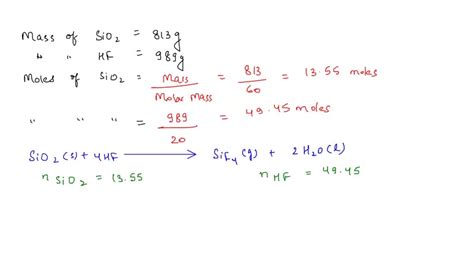 Mass of SiO2 = 813g
" " HF = 989g
Moles of SiO2 = Mass / Molar Mass = 813 / 60 = 13.55 moles
" " " = 989 / 20 = 49.45 moles
SiO2(s) + 4HF → SiF4(g) + 2H2O(l)
n SiO2 = 13.55 n HF = 49.45